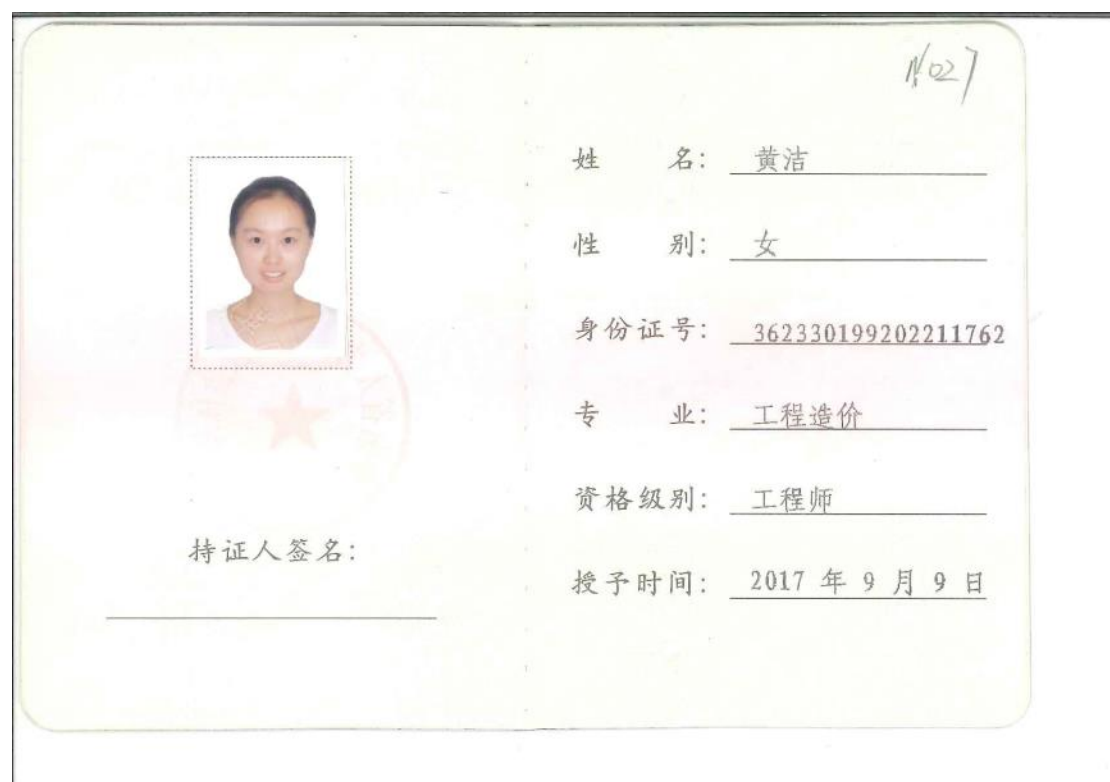 N027
姓 名: 黄洁
性 别: 女
身份证号: 362330199202211762
专 业: 工程造价
资格级别: 工程师
持证人签名:
授予时间: 2017 年 9 月 9 日